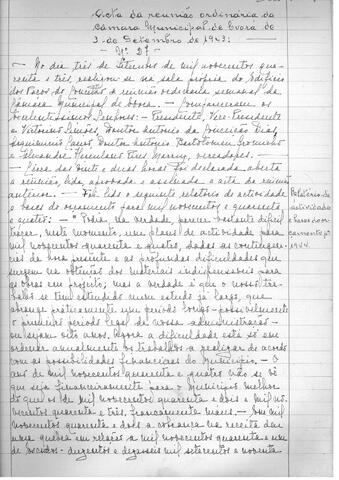 Acta da reunião ordinária da
Câmara Municipal de Évora de
3 de Setembro de 1943:
Nº 27
No dia três de Setembro de mil novecentos qua-
renta e três, realizou-se na sala própria do Edifício
dos Paços do Concelho a reunião ordinária semanal da
Câmara Municipal de Évora. Compareceram os
Excelentíssimos Senhores: Presidente, Vice-Presidente
Doutor António da Conceição Dias,
Doutor António Bartolomeu
Alexandre vereadores.
e duas horas foi declarada aberta
a reunião, lida, aprovada e assinada a acta da reunião
anterior. Foi lido o seguinte relatório de actividade
e bases do orçamento para mil novecentos e quarenta
e quatro: "Podia, na verdade, parecer bastante difícil
traçar, neste momento, um plano de actividade para
mil novecentos quarenta e quatro, dadas as contingên-
cias da hora presente e as profundas dificuldades que
surgem na obtenção dos materiais indispensáveis para
as obras em projecto; mas a verdade é que o nosso tra-
balho se tem estendido num estudo já largo, que
abrange praticamente um período longo possivelmente
o primeiro período legal da nossa administração
ou sejam oito anos. Agora a dificuldade está só em
ordenar anualmente os trabalhos a realizar de acordo
com as possibilidades financeiras do Município. O
ano de mil novecentos quarenta e quatro não se vê
que seja financeiramente para o Município melhor
do que os de mil novecentos quarenta e dois e mil no-
vecentos quarenta e três, francamente maus. Em mil
novecentos quarenta e dois a cobrança na receita deu
uma quebra em relação a mil novecentos quarenta e um
de escudos: duzentos e dezasseis mil setecentos e noventa
Relatório de
actividade
e bases do or-
çamento pª
1944.